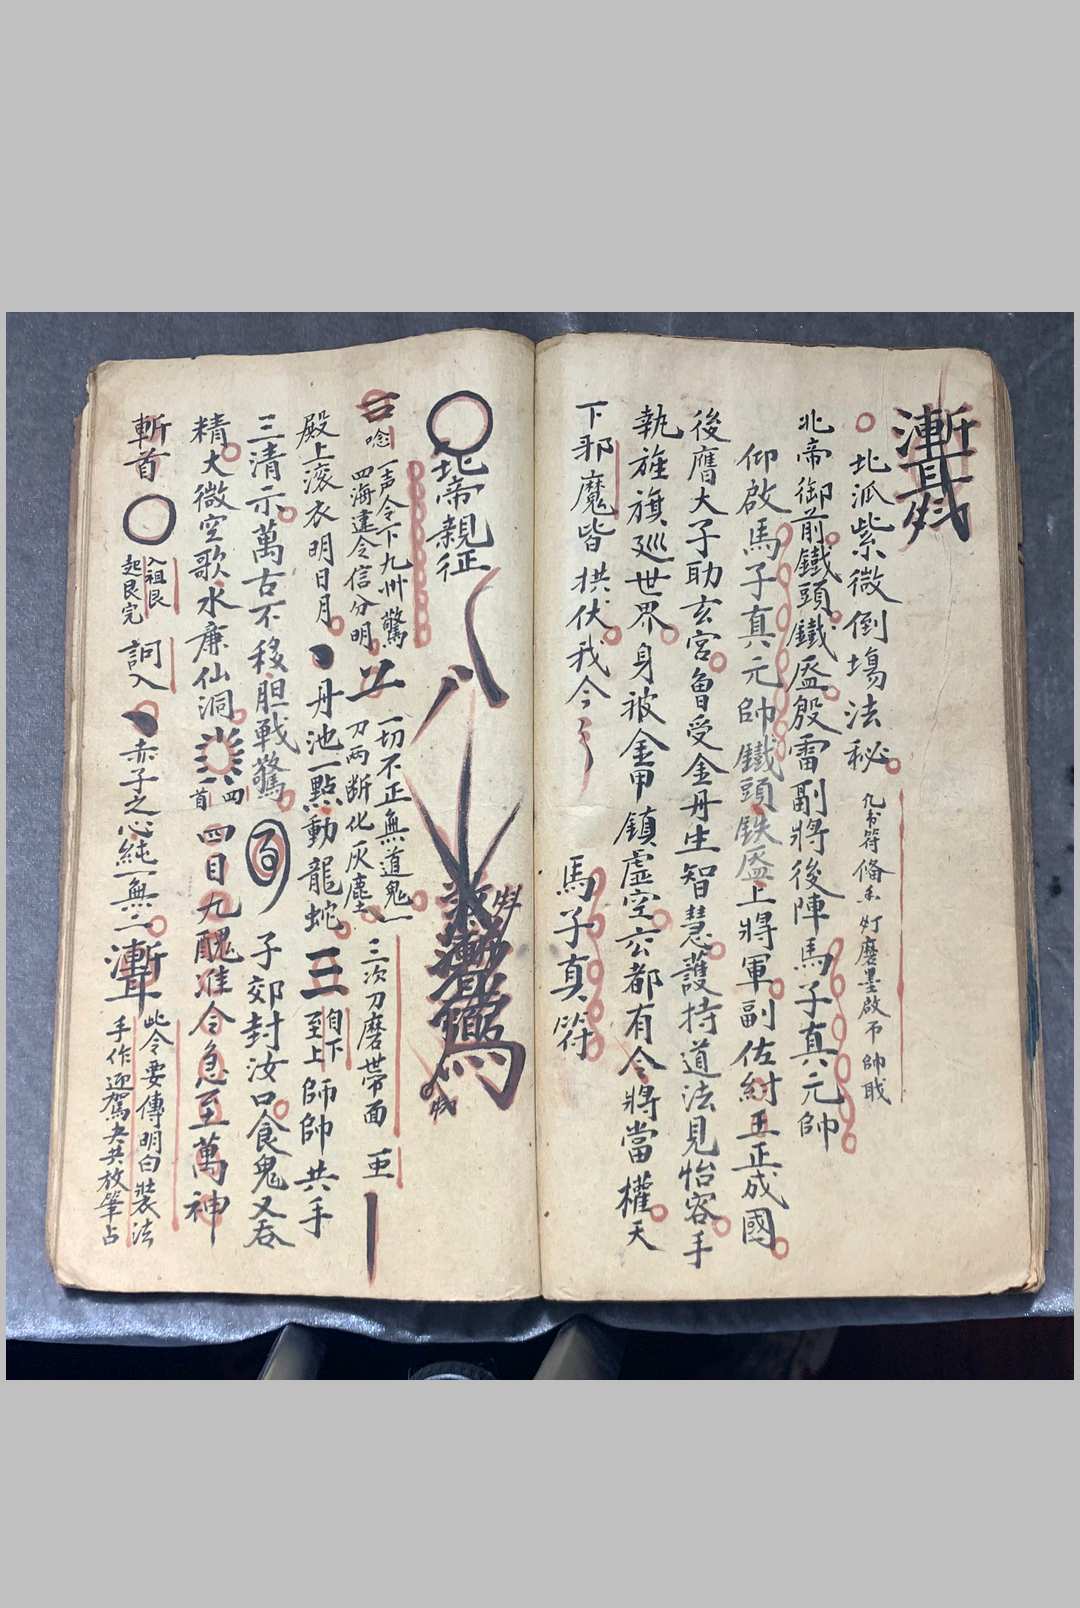 北派紫微倒塲法秘
北帝御前鐵頭鐵䀋殷雷副將後陣馬子真元帥
仰啟馬子真元帥鐵頭鉄䀋上將軍副佐紂王正成國
後膺大子助玄宮魯受金丹生智慧護持道法見怡容手
執旌旗廵世界身被金甲鎮虛空六都有令將當權天
下邪魔皆拱伏我今
馬子真符
北帝親征
唸一声令下九州驚
四海違令信分明
一切不正無道鬼一
刀兩断化灰塵
三次刀磨世帶面
殿上滚衣明日月丹池一點動龍蛇三自下至上師帥共手
三清示萬古不移胆戰驚子郊封汝口食鬼又吞
精大微空歌水廉仙洞四首四目九醜准令急至萬神
斬首
入祖艮
起艮完
詞入
赤子之心純一無二
此令要傳明白裝法
手作迎駕夫共放筆占